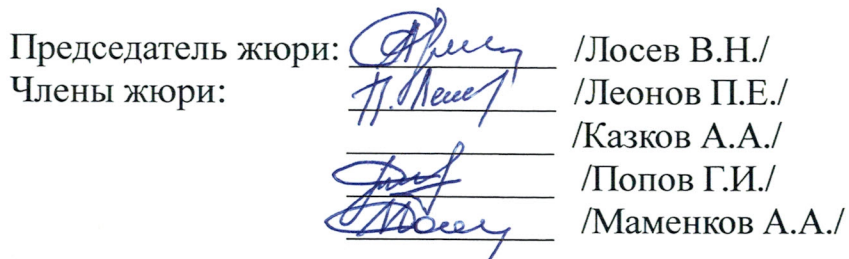 Председатель жюри: /Лосев В.Н./
Члены жюри: /Леонов П.Е./
/Казков А.А./
/Попов Г.И./
/Маменков А.А./